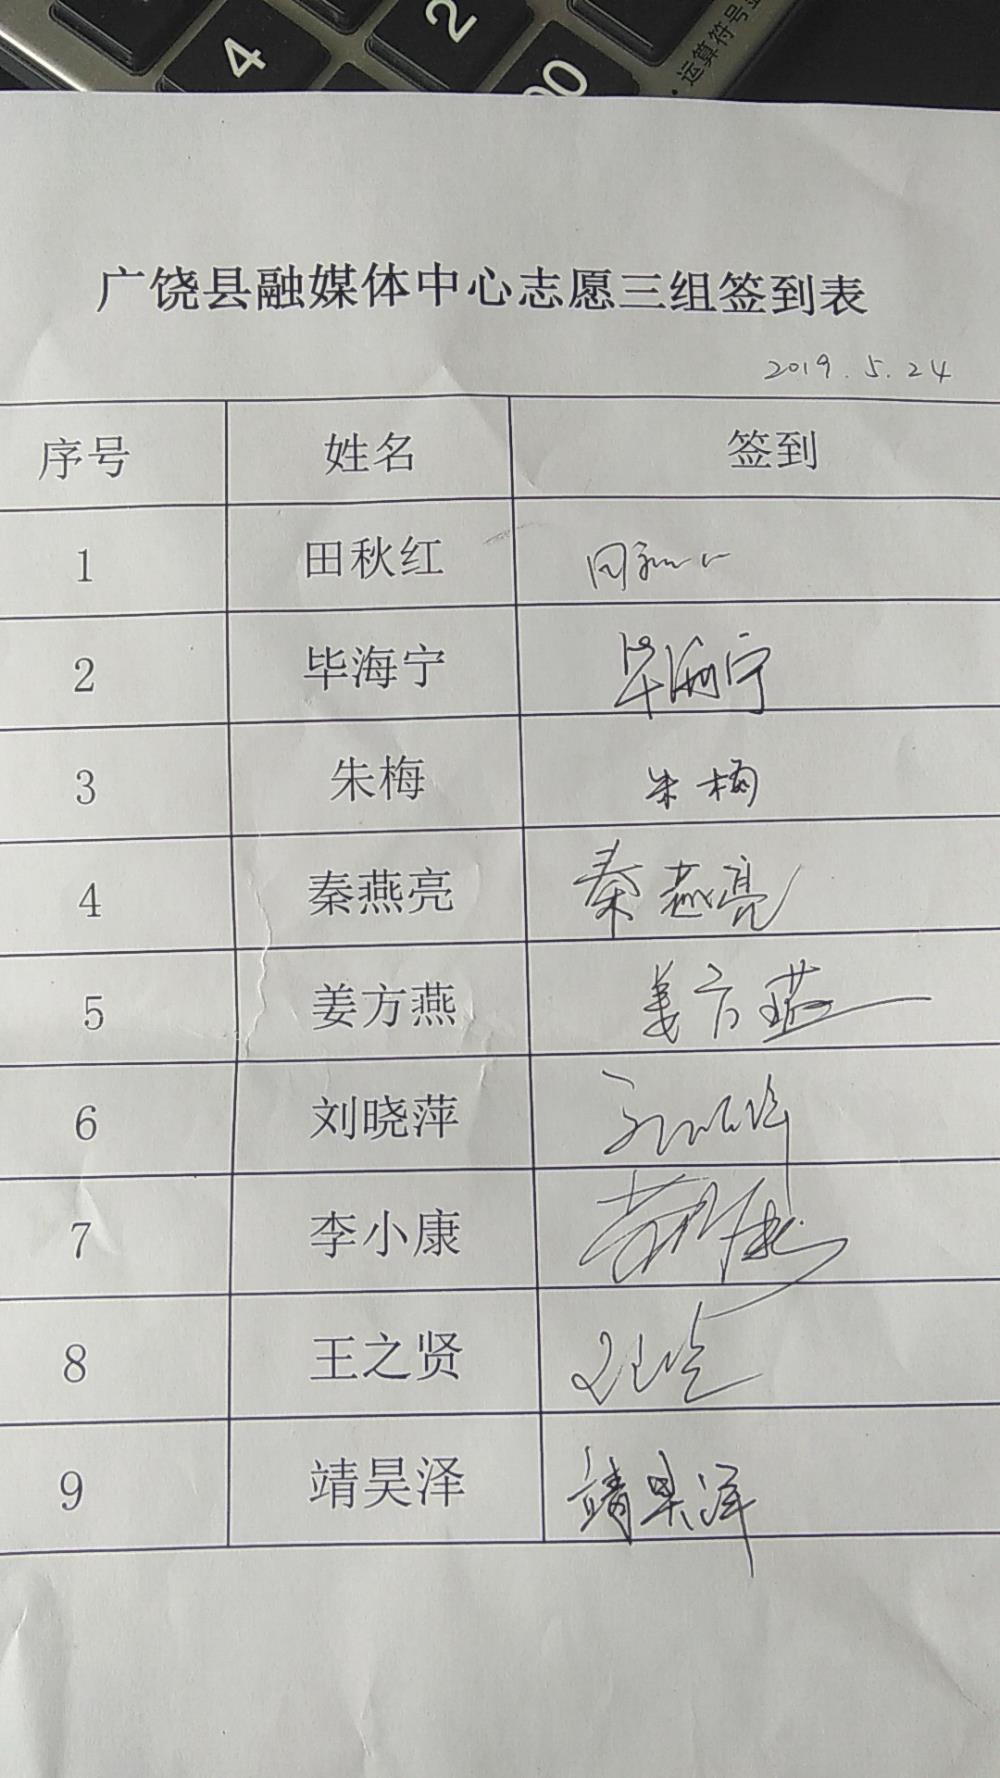 4
2
00
·运算符号
广饶县融媒体中心志愿三组签到表
2019.5.24
序号 姓名 签到
1 田秋红 田秋红
2 毕海宁 毕海宁
3 朱梅 朱梅
4 秦燕亮 秦燕亮
5 姜方燕 姜方燕
6 刘晓萍 刘晓萍
7 李小康
8 王之贤
9 靖昊泽 靖昊泽